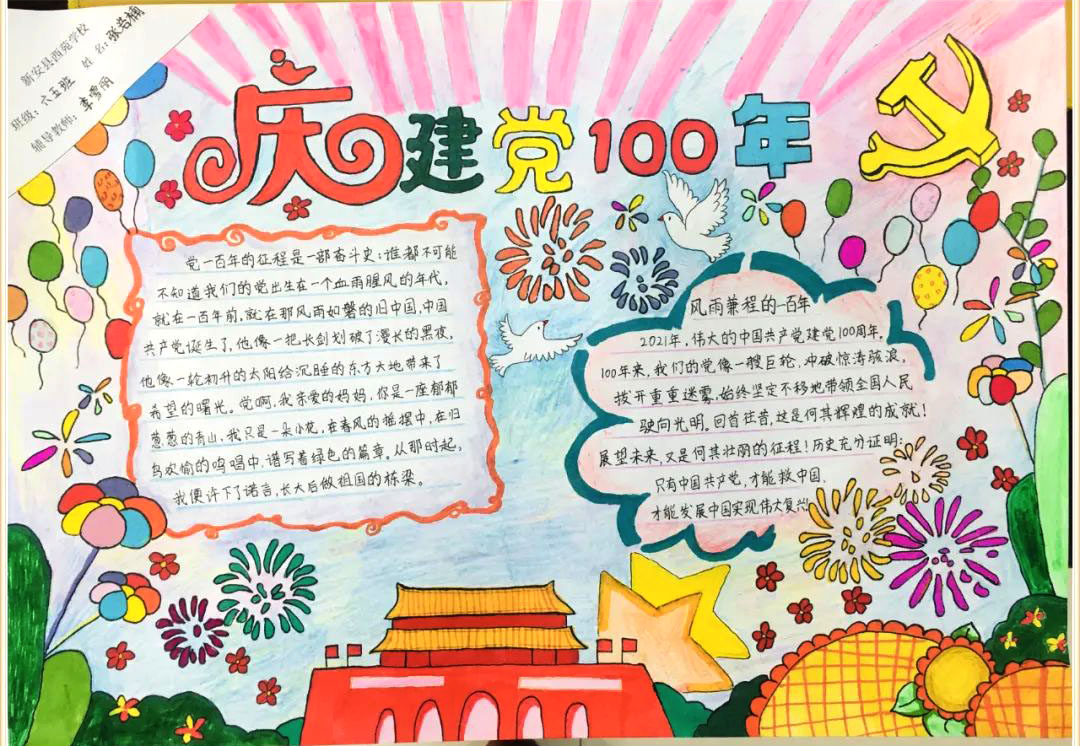 新安县西苑学校
班级：六五班 姓名：张若楠
辅导教师：李雪丽
庆建党100年
党一百年的征程是一部奋斗史：谁都不可能
不知道我们的党出生在一个血雨腥风的年代，
就在一百年前，就在那风雨如磐的旧中国，中国
共产党诞生了，他像一把长剑划破了漫长的黑夜，
他像一轮初升的太阳给沉睡的东方大地带来了
希望的曙光。党啊，我亲爱的妈妈，你是一座郁郁
葱葱的青山，我只是一朵小花，在春风的摇摆中，在归
鸟欢愉的鸣唱中，谱写着绿色的篇章。从那时起，
我便许下了诺言，长大后做祖国的栋梁。
风雨兼程的一百年
2021年，伟大的中国共产党建党100周年，
100年来，我们的党像一艘巨轮，冲破惊涛骇浪，
拨开重重迷雾，始终坚定不移地带领全国人民
驶向光明。回首往昔，这是何其辉煌的成就！
展望未来，又是何其壮丽的征程！历史充分证明：
只有中国共产党，才能救中国，
才能发展中国实现伟大复兴